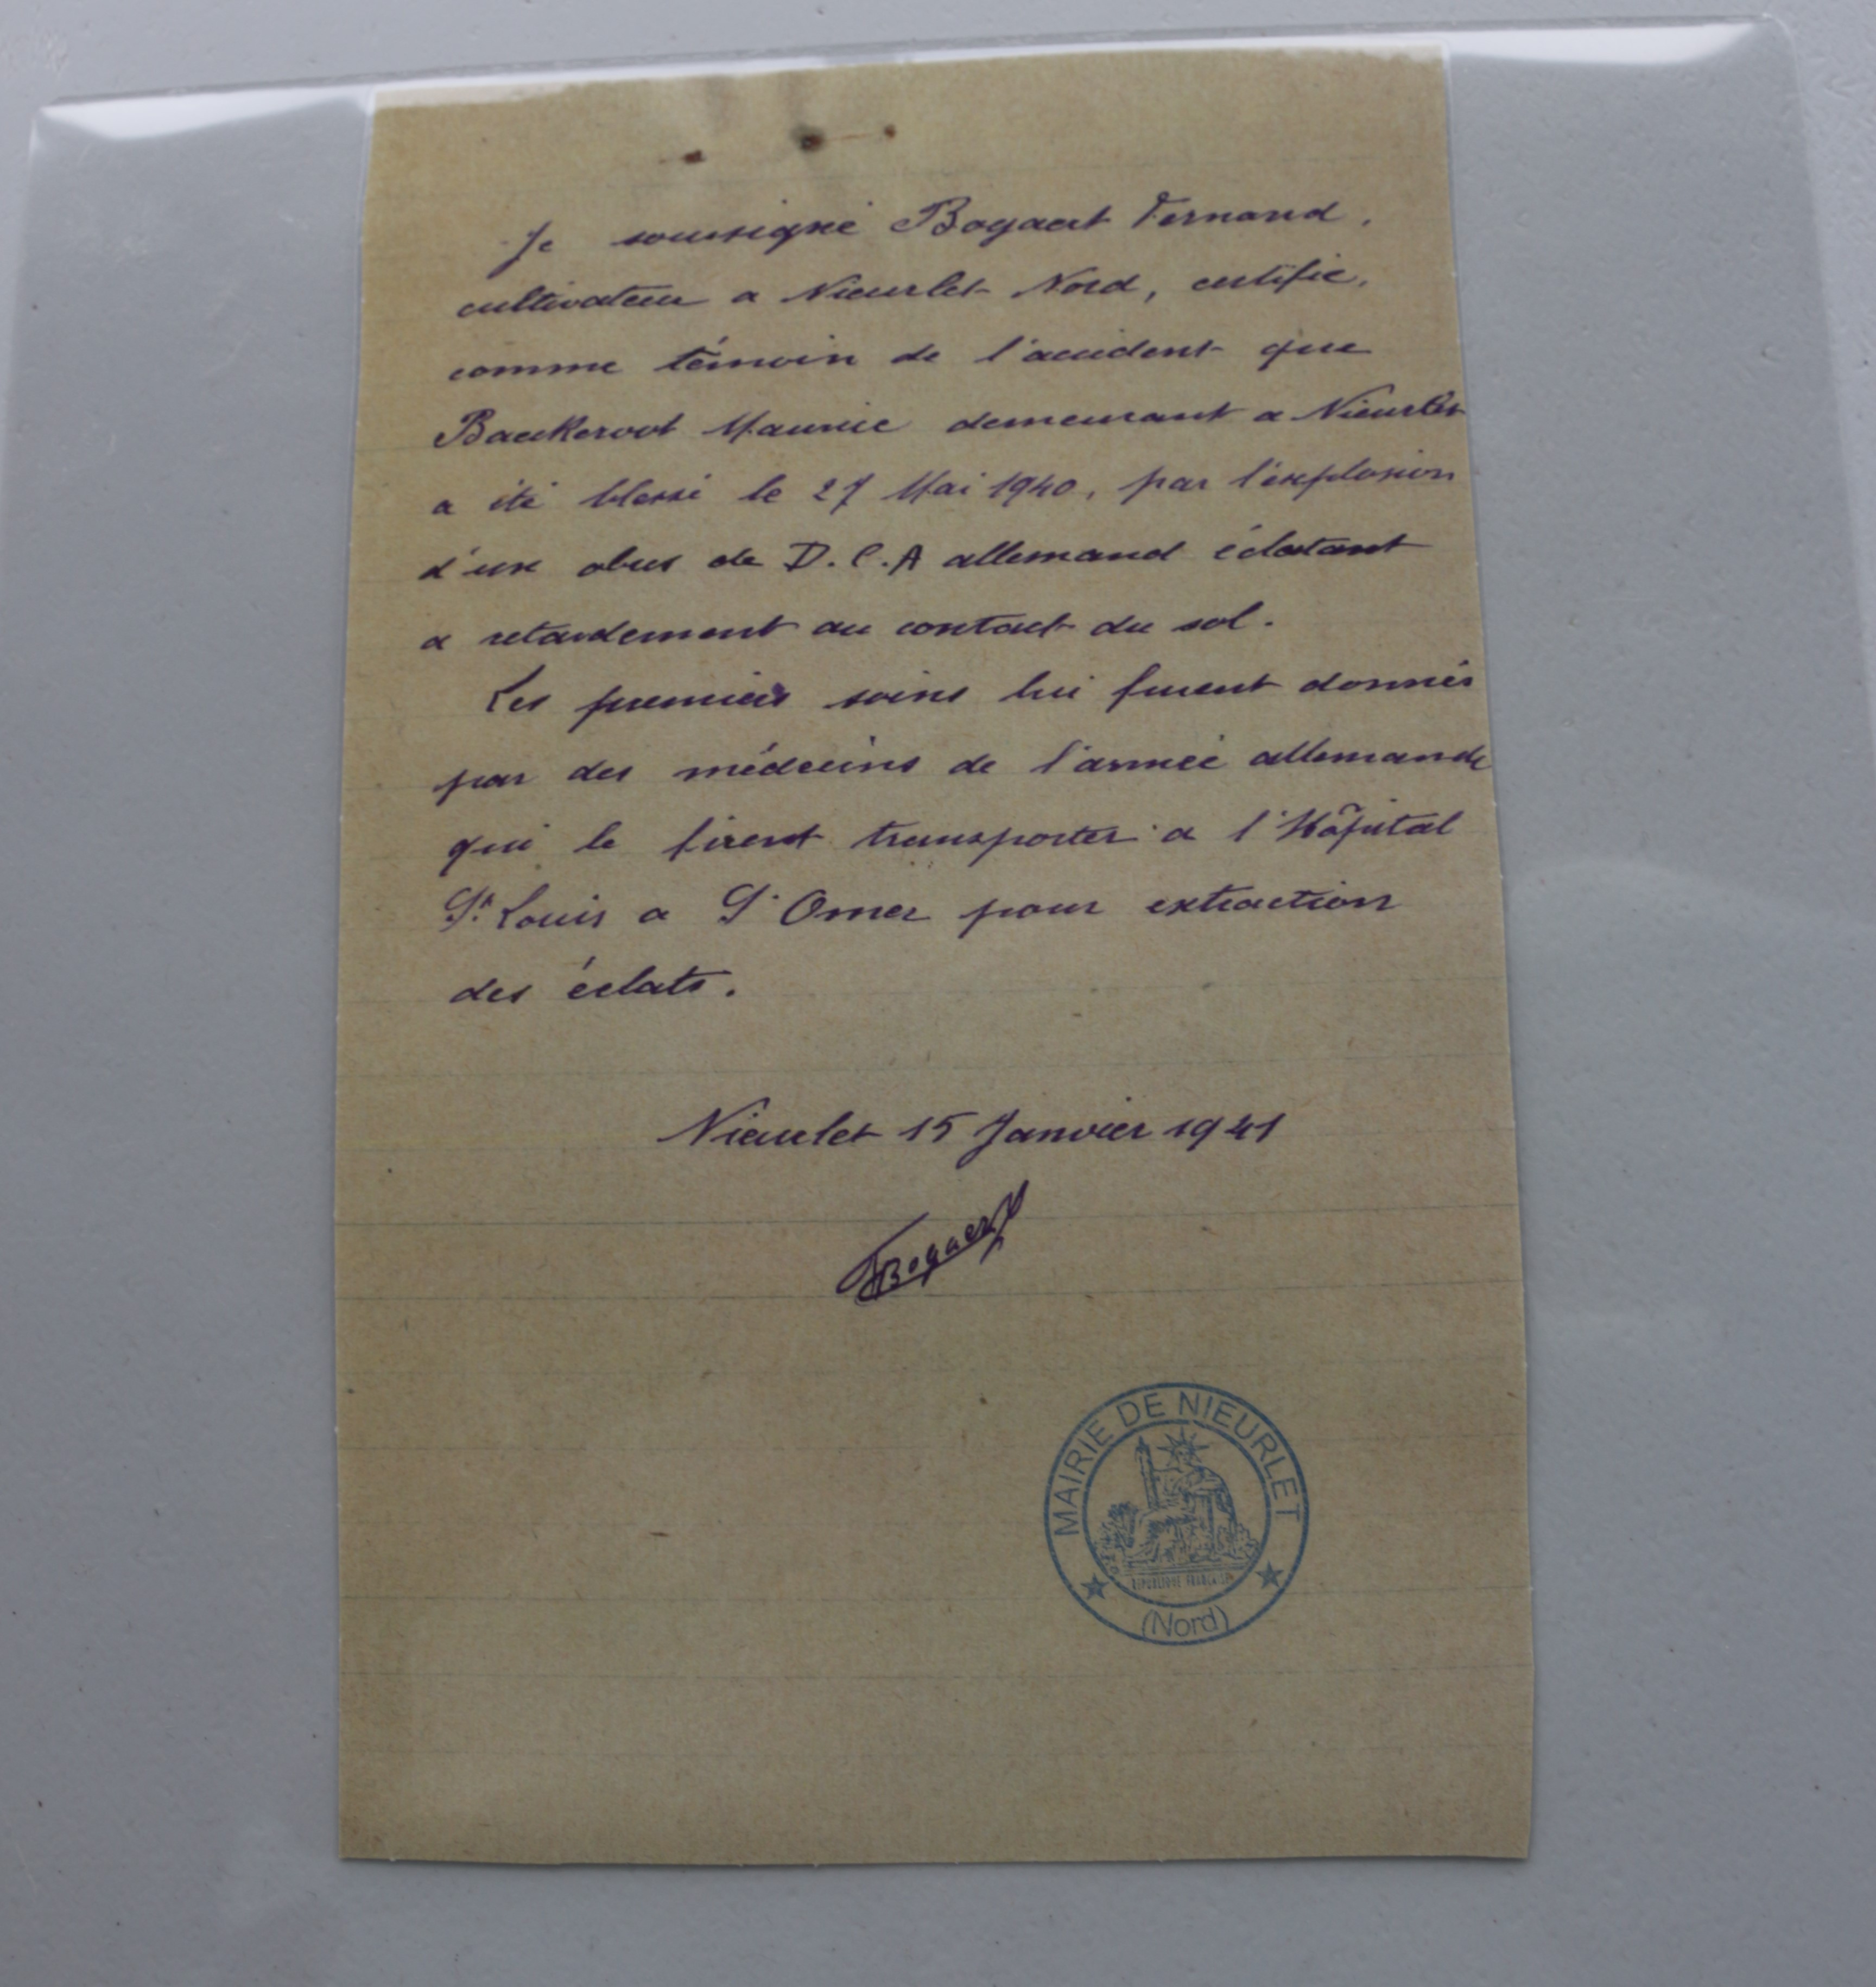 Je soussigné Bogaert Fernand,
cultivateur a Nieurlet Nord, certifie,
comme témoin de l'accident que
Baeckeroot Maurice demeurant a Nieurlet
a été blessé le 27 Mai 1940, par l'explosion
d'un obus de D.C.A allemand éclatant
a retardement au contact du sol.
Les premiers soins lui furent donnés
par des médecins de l'armée allemande
qui le firent transporter a l'Hôpital
St Louis a St Omer pour extraction
des éclats.
Nieurlet 15 Janvier 1941
FBogaert
MAIRIE DE NIEURLET
REPUBLIQUE FRANCAISE
(Nord)